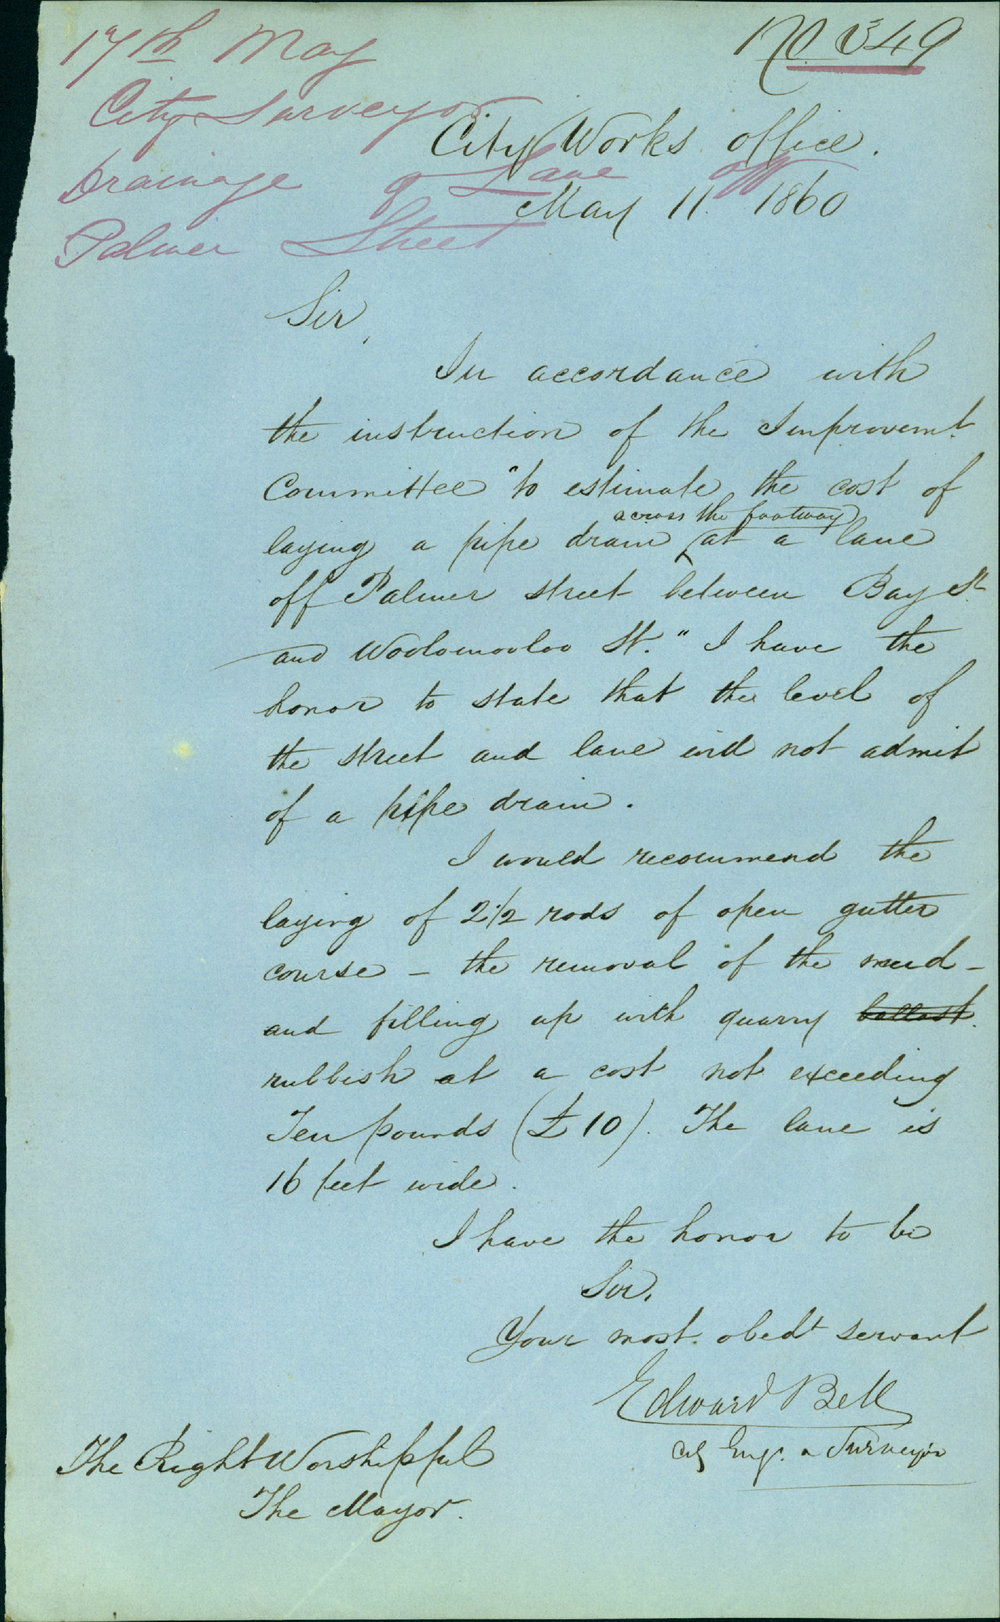 No 349
17th May
City Surveyor
Drainage of Lane off
Palmer Street
City Works office.
May 11. 1860
Sir,
In accordance with
the instruction of the Improvemt.
Committee "to estimate the cost of
across the footway
laying a pipe drain at a lane
off Palmer street between Bay St.
and Woolomooloo St." I have the
honor to state that the level of
the street and lane will not admit
of a pipe drain.
I would recommend the
laying of 2 1/2 rods of open gutter
course – the removal of the mud –
and filling up with quarry ballast
rubbish at a cost not exceeding
Ten pounds (£10). The lane is
16 feet wide.
I have the honor to be
Sir,
Your most obedt servant
Edward Bell
City Engr. & Surveyor
The Right Worshipful
The Mayor.